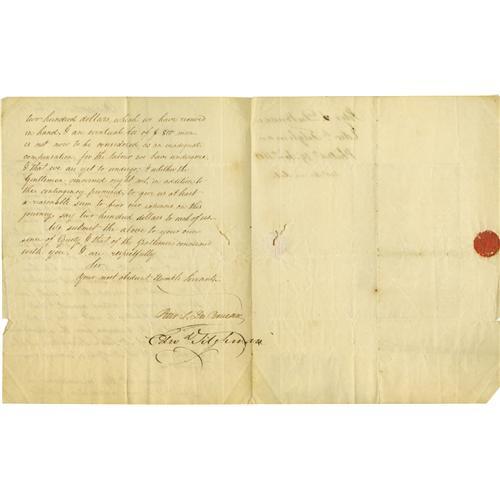 two hundred dollars, which we have received
in hand, & an eventual fee of $ 800 more
is not now to be considered as an inadequate
compensation for the labour we have undergone
& that we are yet to undergo, & whether the
Gentlemen concerned ought not, in addition to
the contingency promised, to give us at least
a reasonable sum to bear our expenses on this
journey, say two hundred dollars to each of us.
We submit the above to your own
sense of Equity, & that of the Gentlemen concerned
with you, & are respectfully
Sir
Your most obedient Humble Servants
Peter S. Du Ponceau
Edwd Tilghman